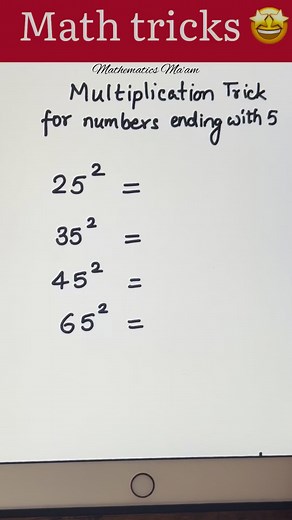 Math tricks 🤩
Mathematics Ma'am
Multiplication Trick
for numbers ending with 5
25² =
35² =
45² =
65² =